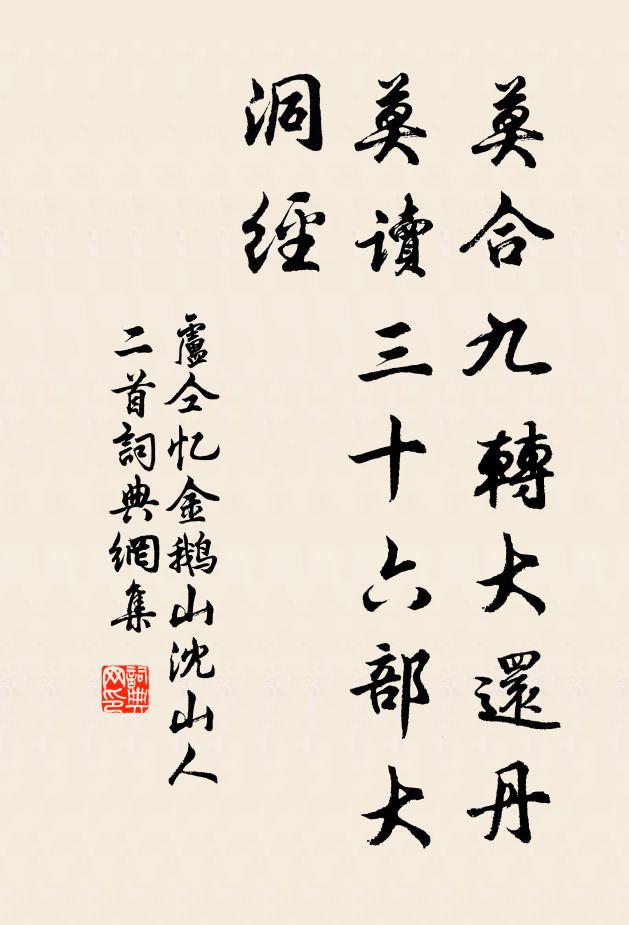 莫合九轉大還丹
莫讀三十六部大
洞經
盧仝忆金鵝山沈山人
二首詞典網集
詞典
网印